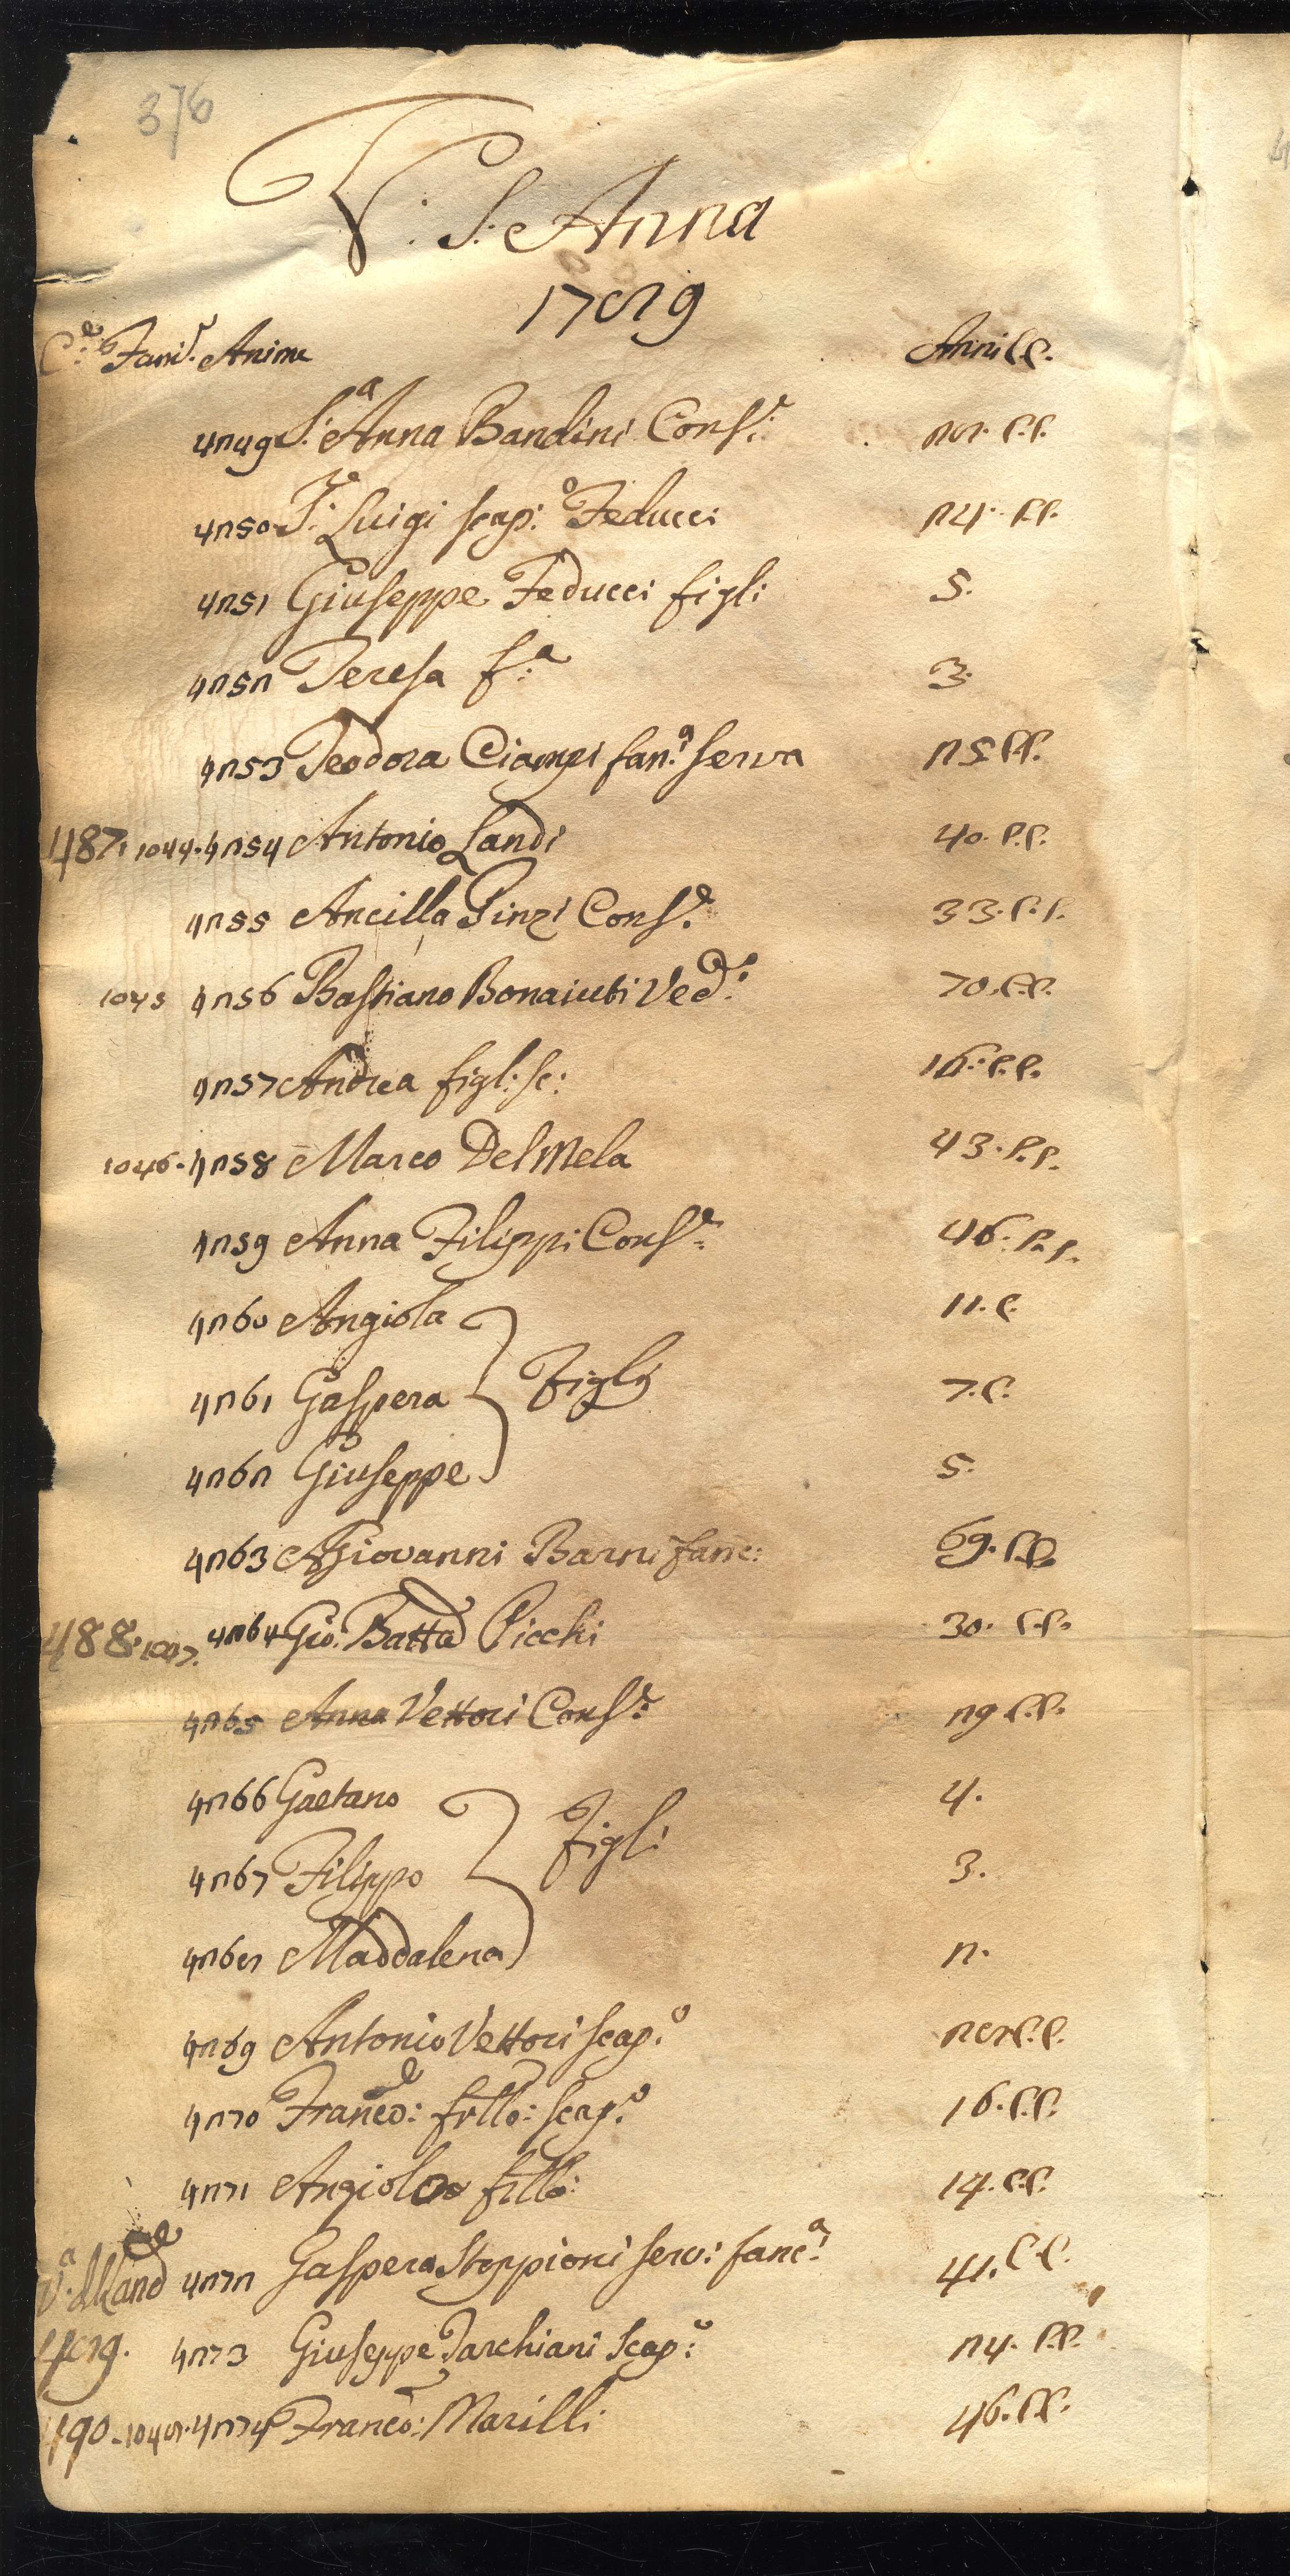 376
V: S: Anna
1789
C.e Fam.e Anime Anni CC.
4249 S.a Anna Bandini Cons.e 28. C.C.
4250 Luigi scap.o Feducci 24. C.C.
4251 Giuseppe Feducci figli 5.
4252 Teresa f.a 3.
4253 Teodora Ciampi fan.a serva 25 CC.
487. 1044. 4254 Antonio Landi 40. C.C.
4255 Ancilla Pinzi Cons.e 33. C.C.
1045 4256 Bastiano Bonaiuti Ved.o 70. C.C.
4257 Andrea figl: sc: 16. C.C.
1046. 4258 Marco Del Mela 43. C.C.
4259 Anna Filippi Cons.e 46. C.C.
4260 Angiola 11. C.
4261 Gaspera Figli 7. C.
4262 Giuseppe 5.
4263 Giovanni Barni fanc: 69. C.C.
488. 1047. 4264 Gio. Batta Picchi 30. C.C.
4265 Anna Vettori Cons.e 29 C.C.
4266 Gaetano 4.
4267 Filippo Figli 3.
4268 Maddalena 2.
4269 Antonio Vettori scap.o 28 C.C.
4270 Franco: frllo: scap.o 16. C.C.
4271 Angiolo frllo: 14. C.C.
4272 Gaspera Stoppioni serv: fanc.a 41. C.C.
489. 4273 Giuseppe Tarchiani scap.o 24. C.C.
490. 1048. 4274 Franco: Marilli 46. C.C.